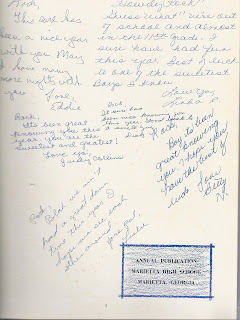 Rock,
This year has
been a nice year
with you. May
I have many
more nights with
you
Love,
Eddie
"Howdy Rock!"
Guess what? We're out
of school and almost
in the 11th grade. I
sure have had fun
this year. Best of luck
to one of the sweetest
Boys I know.
Love you,
Linda
Rock,
It's been great
knowing you this
year. You are the
sweetest and greatest!
Love ya,
Judy Collins
Rock
It sure has
been nice knowing
this year
a sweet
Rock,
Boy it's been
great knowing
you. Hope you
have the best of
luck. Love
Betty
N.
Rock,
Glad we met
had a good
time this year. I
hope we see each
other around
ANNUAL PUBLICATION
MARIETTA HIGH SCHOOL
MARIETTA, GEORGIA